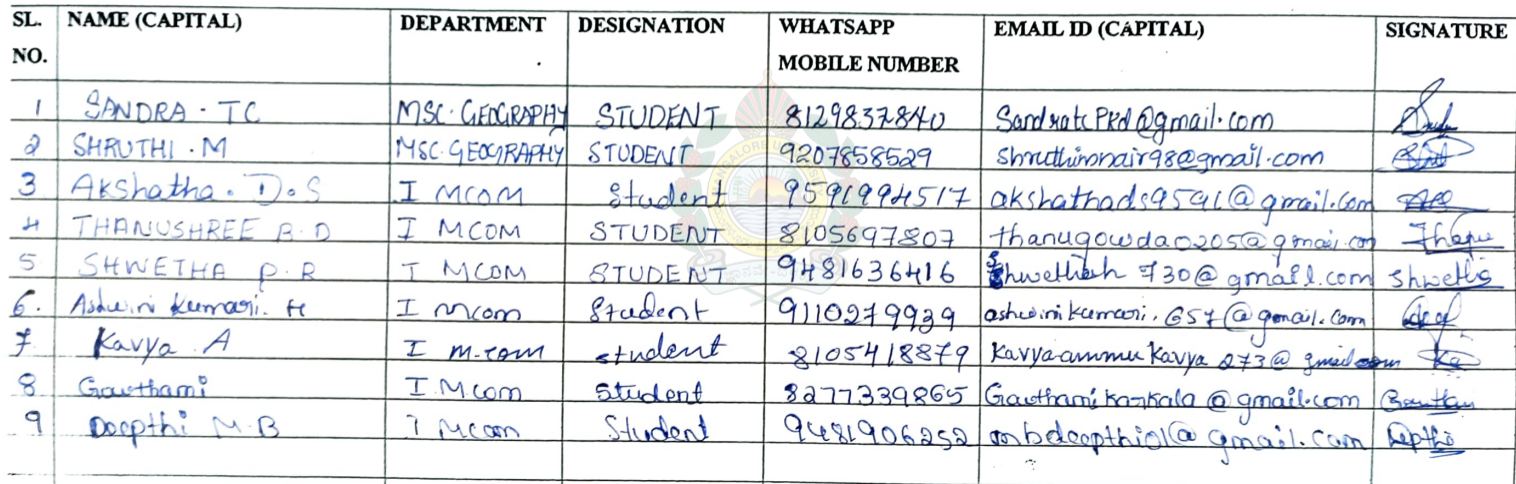 SL. NO. NAME (CAPITAL) DEPARTMENT DESIGNATION WHATSAPP MOBILE NUMBER EMAIL ID (CAPITAL) SIGNATURE
1 SANDRA . TC MSC. GEOGRAPHY STUDENT 8129837840 SandratcPkd@gmail.com
2 SHRUTHI . M MSC. GEOGRAPHY STUDENT 9207858529 shruthimnair98@gmail.com
3 Akshatha. D.S I MCOM Student 9591994517 akshathads9591@gmail.com
4 THANUSHREE B.D I MCOM STUDENT 8105697807 thanugowda0205@gmail.com
5 SHWETHA P.R I MCOM STUDENT 9481636416 730@gmail.com Shwetha
6. Ashwini kumari. H I mcom Student 9110279939 ashwinikumari.657@gmail.com
7 Kavya A I m.com student 8105418879 Kavyaammukavya273@gmail.com
8 Gowthami I M.com Student 8277339865 Gowthamikankala@gmail.com
9 Deepthi M.B I Mcom Student 9481906252 mbdeepthi01@gmail.com Depthi